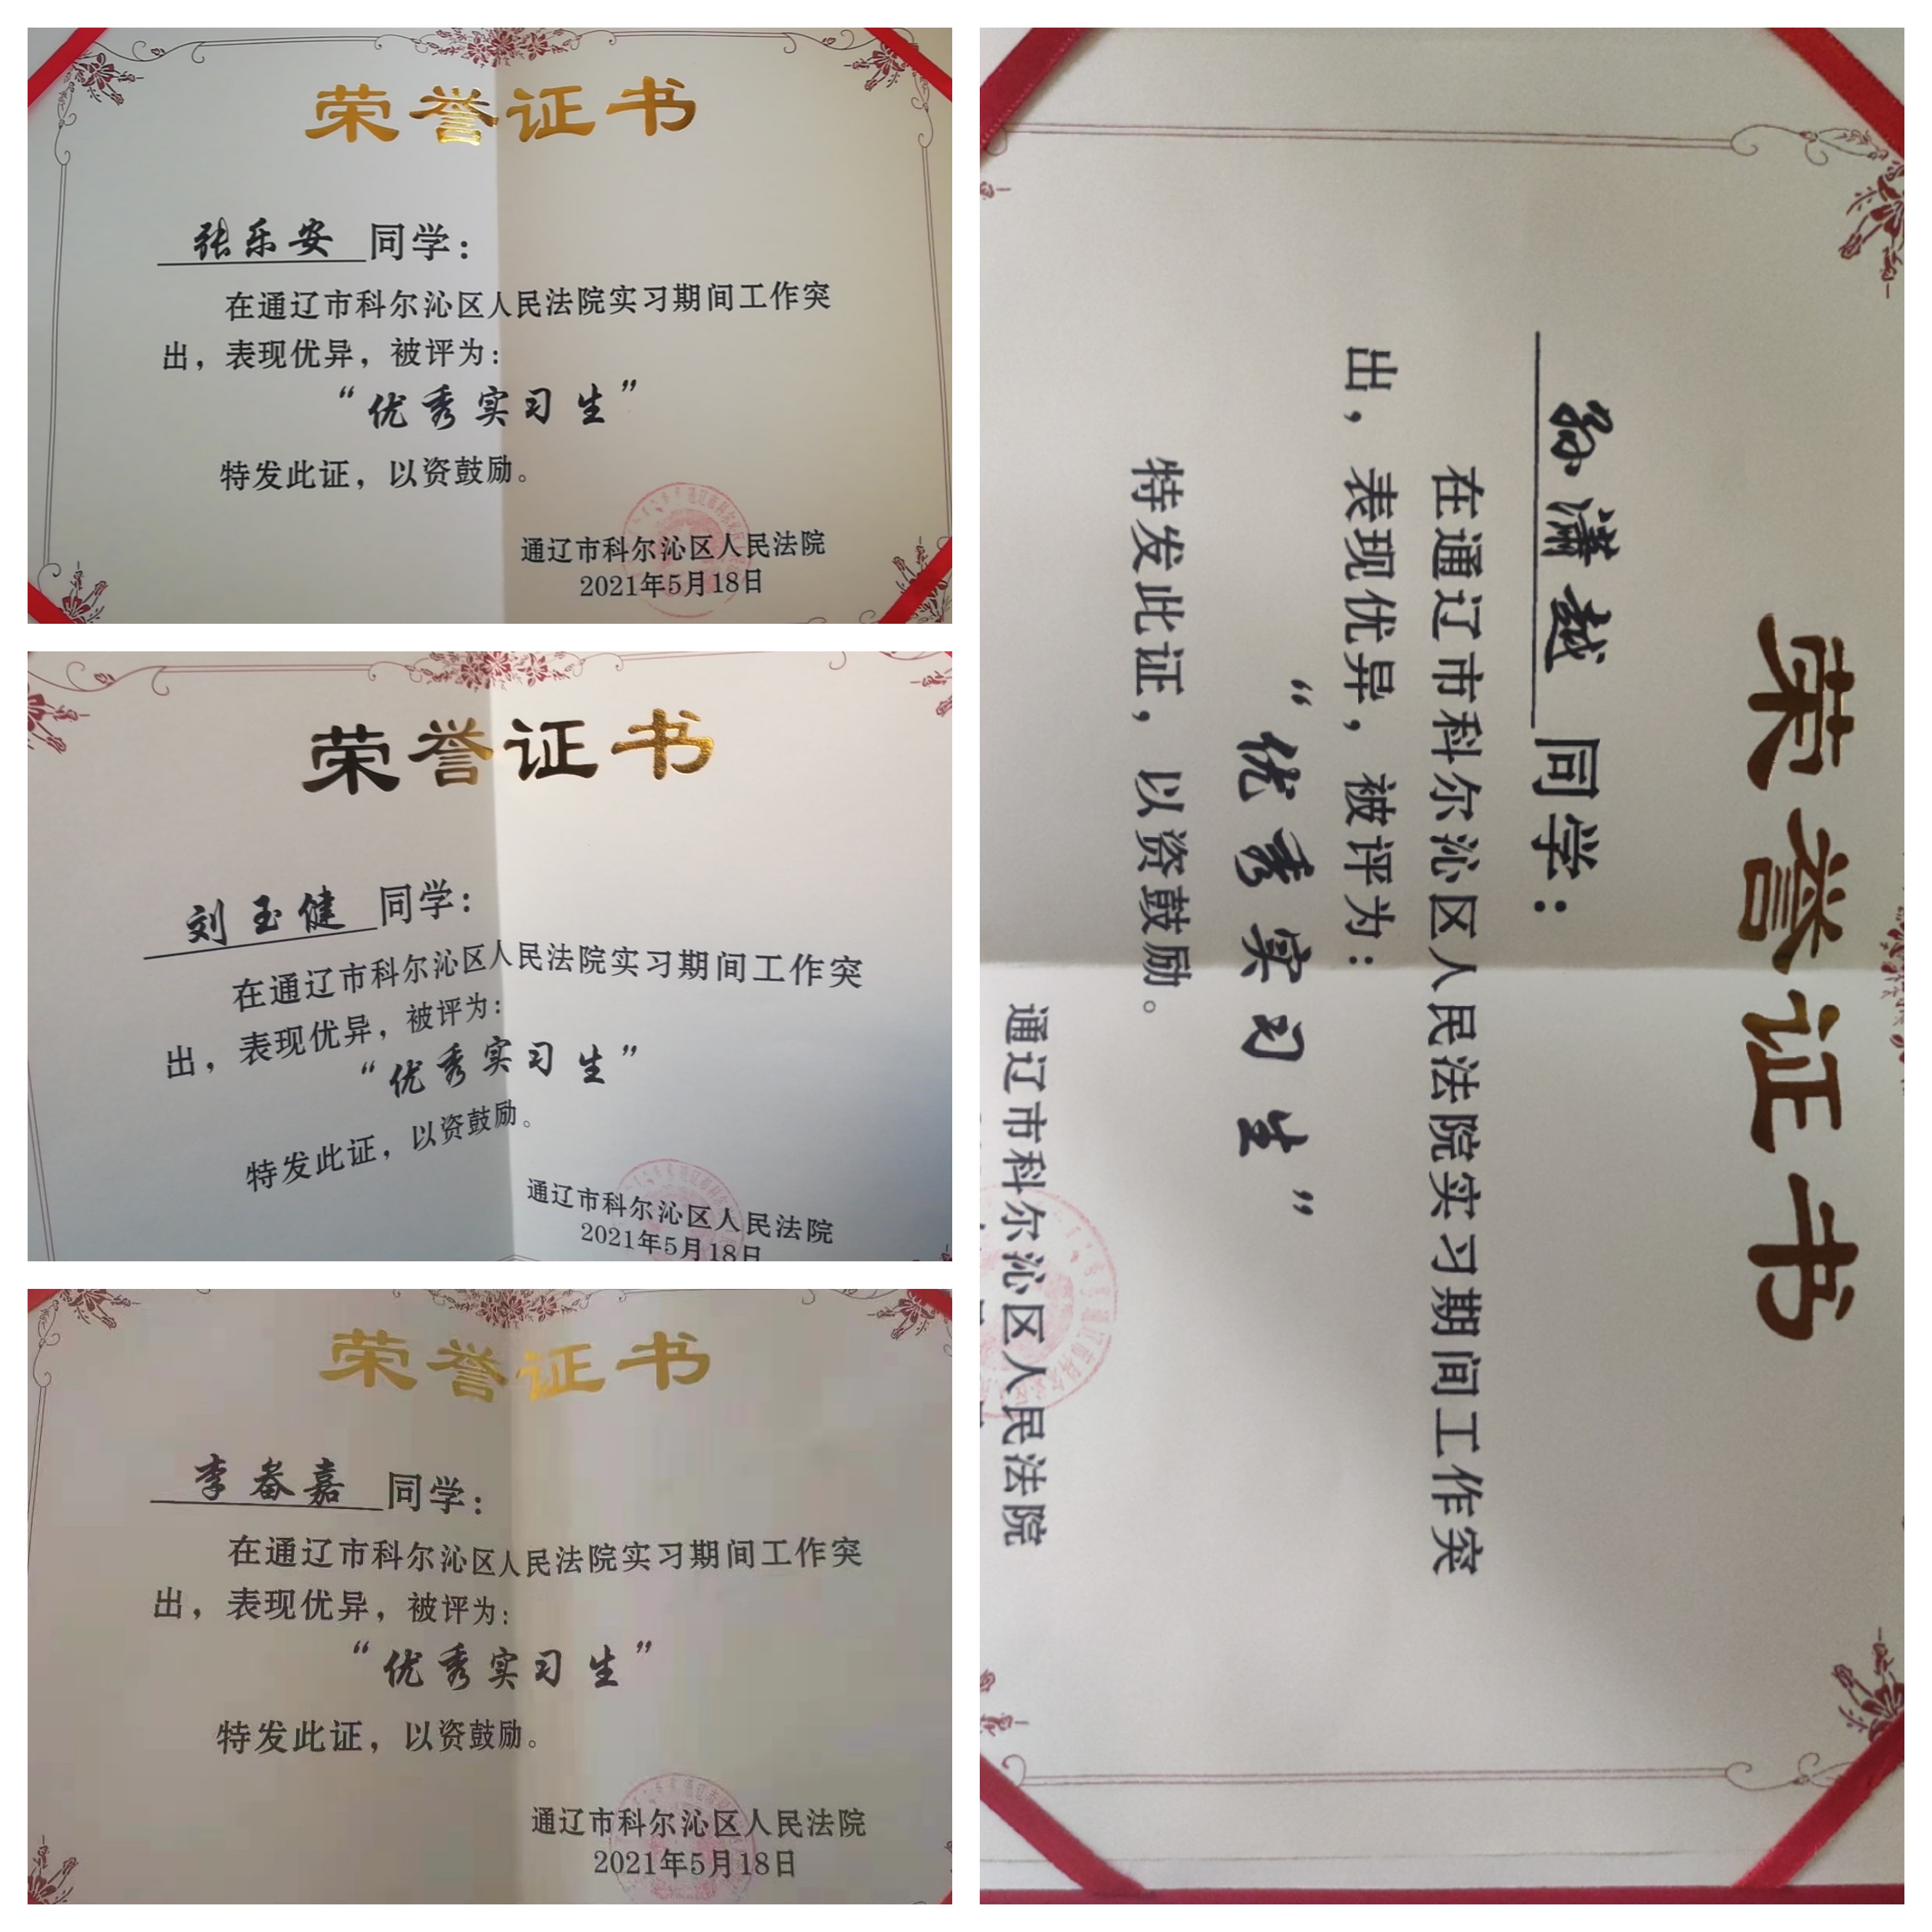 荣誉证书
张乐安 同学：
在通辽市科尔沁区人民法院实习期间工作突
出，表现优异，被评为：
“优秀实习生”
特发此证，以资鼓励。
通辽市科尔沁区人民法院
2021年5月18日
荣誉证书
刘玉健 同学：
在通辽市科尔沁区人民法院实习期间工作突
出，表现优异，被评为：
“优秀实习生”
特发此证，以资鼓励。
通辽市科尔沁区人民法院
2021年5月18日
荣誉证书
李畚嘉 同学：
在通辽市科尔沁区人民法院实习期间工作突
出，表现优异，被评为：
“优秀实习生”
特发此证，以资鼓励。
通辽市科尔沁区人民法院
2021年5月18日
荣誉证书
孙潇越 同学：
在通辽市科尔沁区人民法院实习期间工作突
出，表现优异，被评为：
“优秀实习生”
特发此证，以资鼓励。
通辽市科尔沁区人民法院